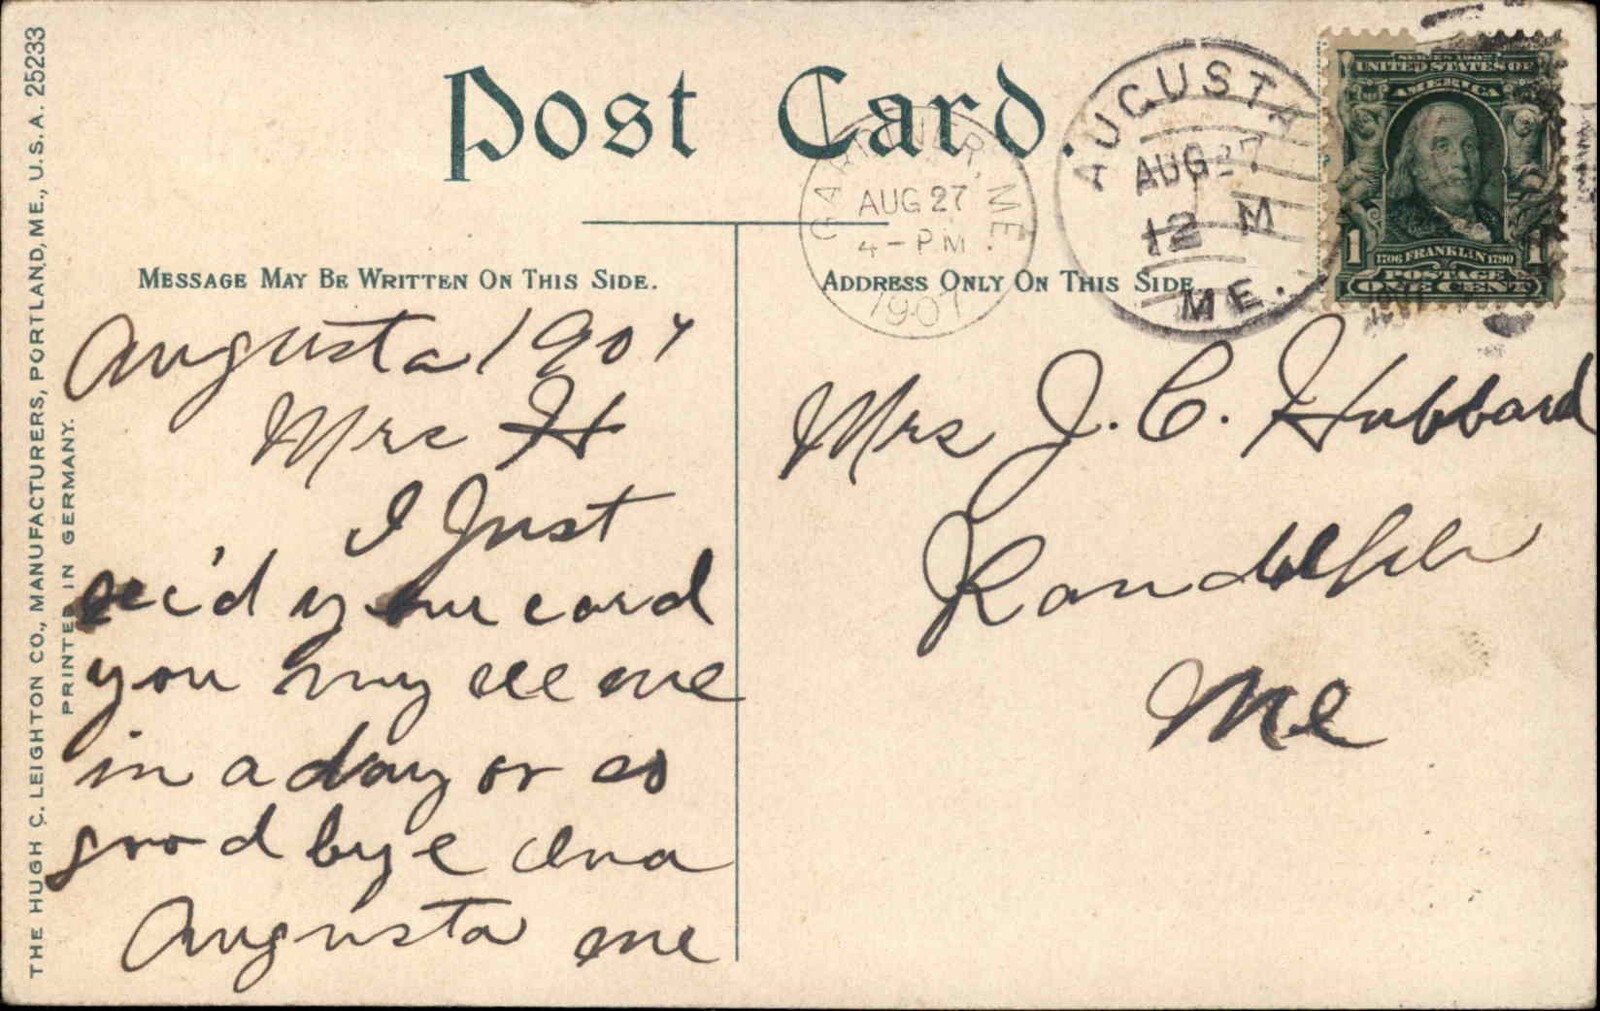 THE HUGH C. LEIGHTON CO., MANUFACTURERS, PORTLAND, ME., U.S.A. 25233
PRINTED IN GERMANY.
Post Card.
MESSAGE MAY BE WRITTEN ON THIS SIDE.
ADDRESS ONLY ON THIS SIDE
GARDINER, ME.
AUG 27
4 - P M
1907
AUGUSTA
AUG 27
12 M
ME.
UNITED STATES OF
AMERICA
1706 FRANKLIN 1790
1 1
POSTAGE
ONE CENT
Augusta 1907
Mrs H
I Just
rec'd your card
you my see me
in a day or so
good bye
Augusta me
Mrs J. C. Hubbard
Randolph
Me